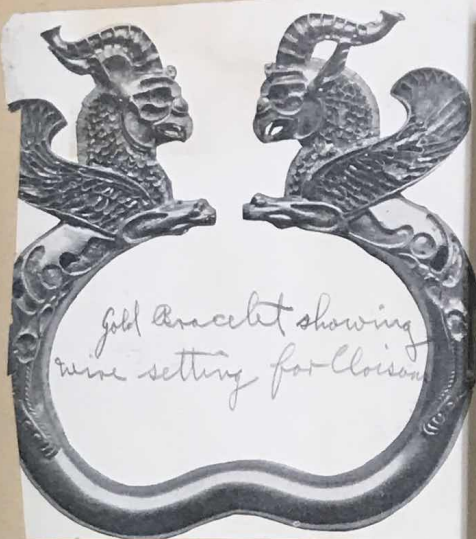 Gold Bracelet showing
wire setting for Cloison